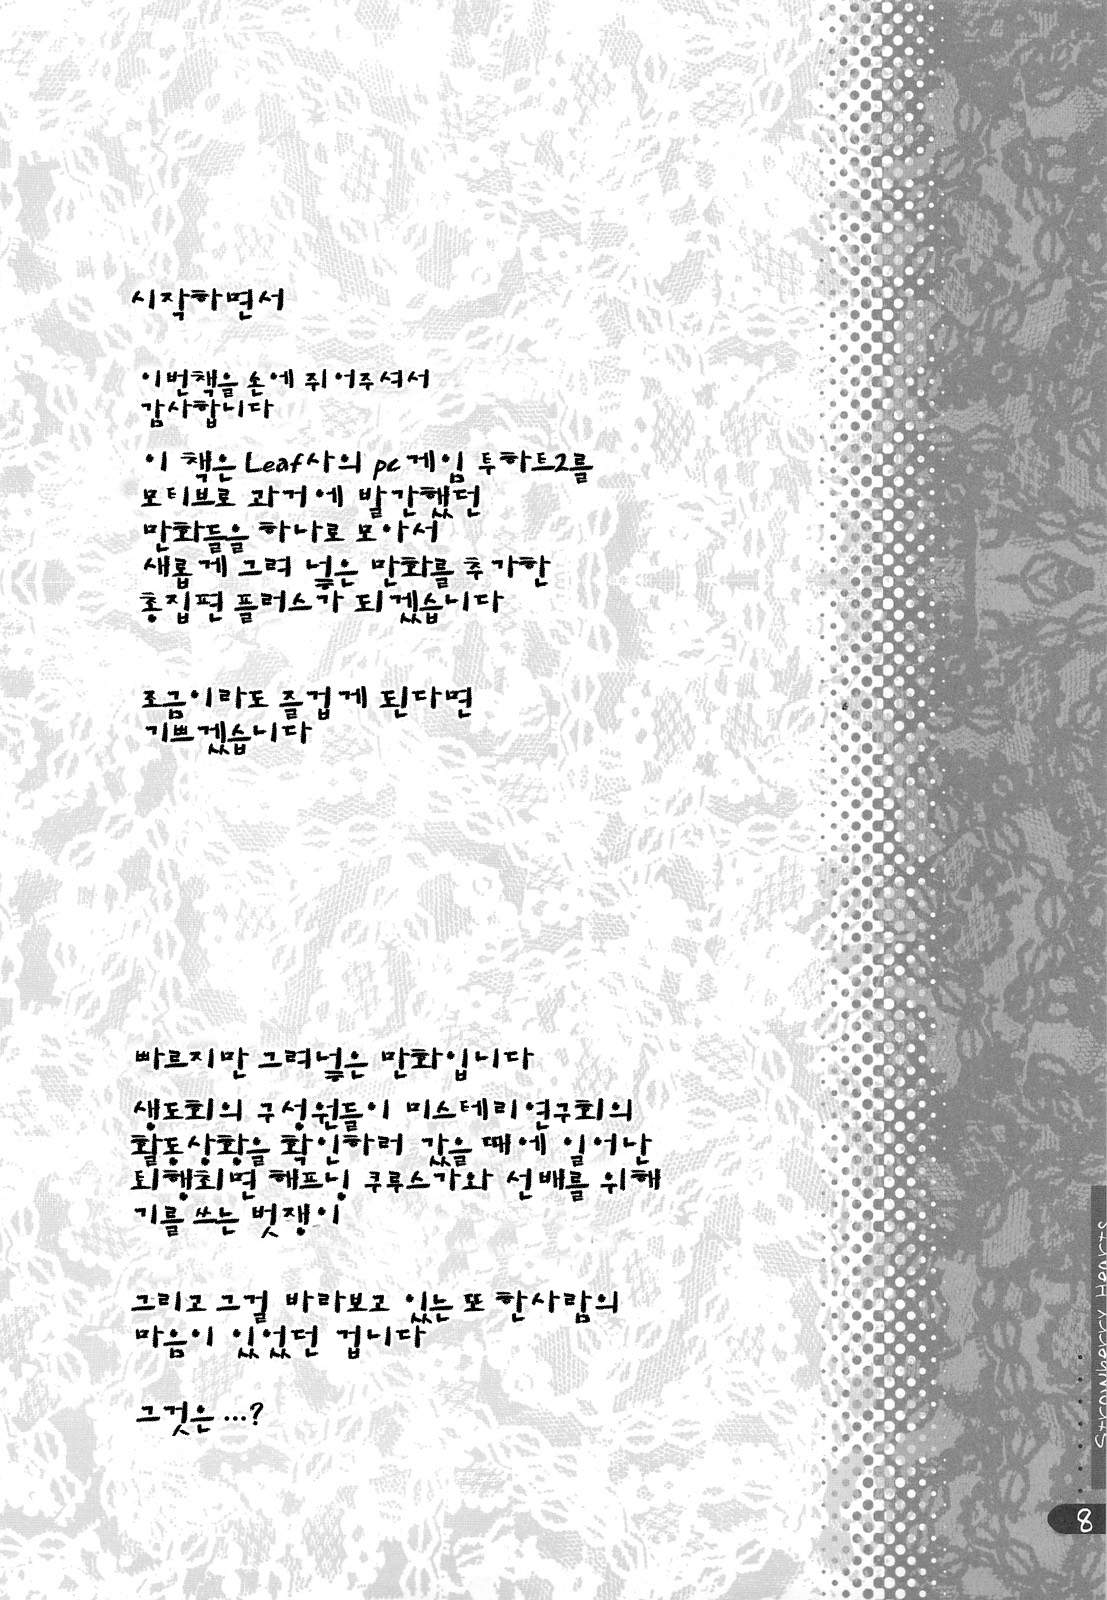 시작하면서
이번책을 손에 쥐어주셔서
감사합니다
이 책은 Leaf사의 pc게임 투하트2를
모티브로 과거에 발간했던
만화들을 하나로 모아서
새롭게 그려 넣은 만화를 추가한
총집편 플러스가 되겠습니다
조금이라도 즐겁게 된다면
기쁘겠습니다
빠르지만 그려넣은 만화입니다
생도회의 구성원들이 미스테리연구회의
활동상황을 확인하러 갔을 때에 일어난
퇴행최면 해프닝 쿠루스가와 선배를 위해
기를 쓰는 벗쟁이
그리고 그걸 바라보고 있는 또 한사람의
마음이 있었던 겁니다
그것은 …?
Strawberry Hearts
8